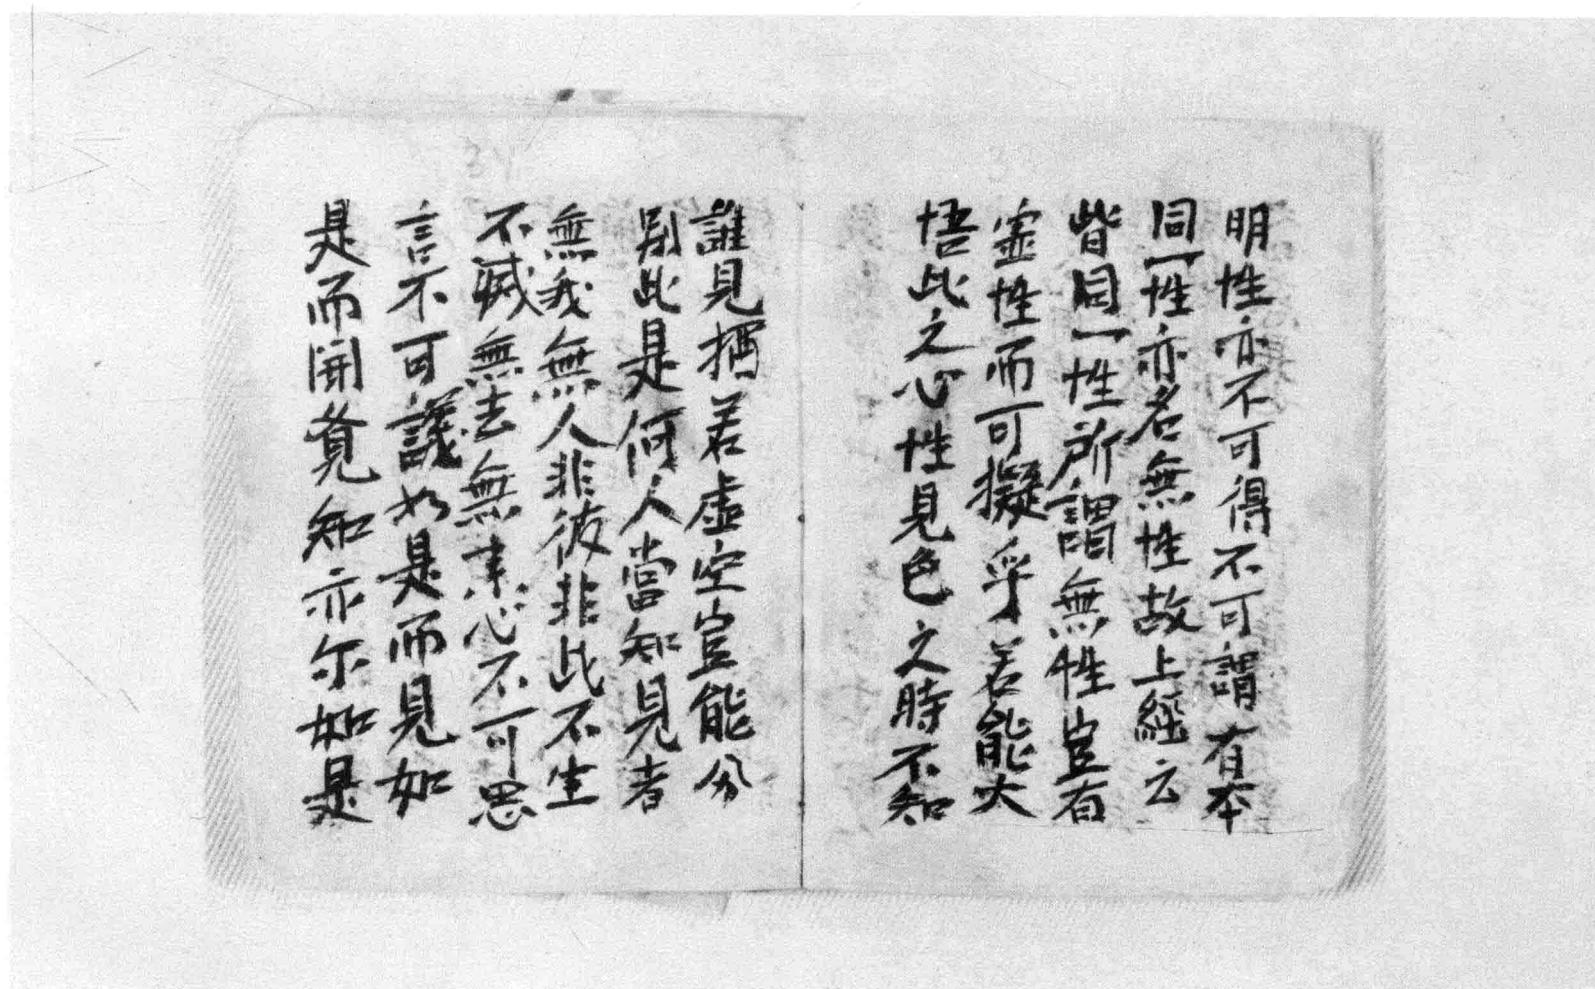 明性亦不可得不可謂有本
同一性亦名無性故上經云
皆同一性所謂無性豈有
靈性而可擬乎若能大
悟此之心性見色之時不知
誰見猶若虛空豈能分
別此是何人當知見者
無我無人非彼非此不生
不滅無去無來心不可思
言不可議如是而見如
是而聞覺知亦尔如是